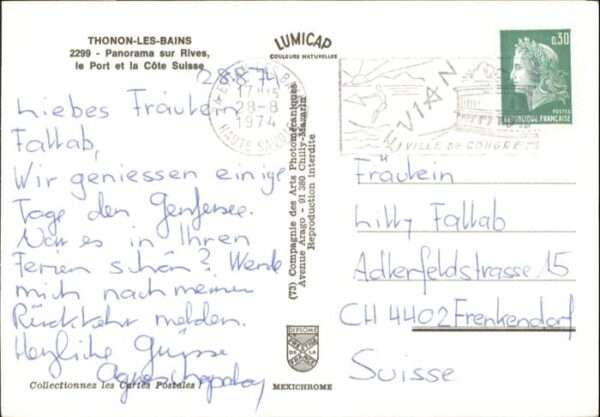 THONON-LES-BAINS
2299 - Panorama sur Rives,
le Port et la Côte Suisse
LUMICAP
COULEURS NATURELLES
0,30
POSTES
REPUBLIQUE FRANÇAISE
28.8.74
28-8
1974
EVIAN
VILLE DE CONGRES
Liebes Fräulein
Fallab,
Wir geniessen einige
Tage den Genfersee.
War es in Ihren
Ferien schön? Werde
mich nach meiner
Rückkehr melden.
Herzliche Grüsse
(73) Compagnie des Arts Photomécaniques
Avenue Arago - 91 380 Chilly-Mazarin
Reproduction interdite
Fräulein
Lilly Fallab
Adlerfeldstrasse 15
CH 4402 Frenkendorf
Suisse
Collectionnez les Cartes Postales !
MEXICHROME